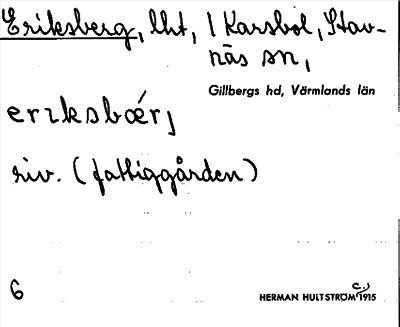 Eriksberg, lht, i Karsbol, Stav-
näs sn,
Gillbergs hd, Värmlands län
erıksbœ́rj
riv. (fattiggården)
6
c.)
HERMAN HULTSTRÖM 1915